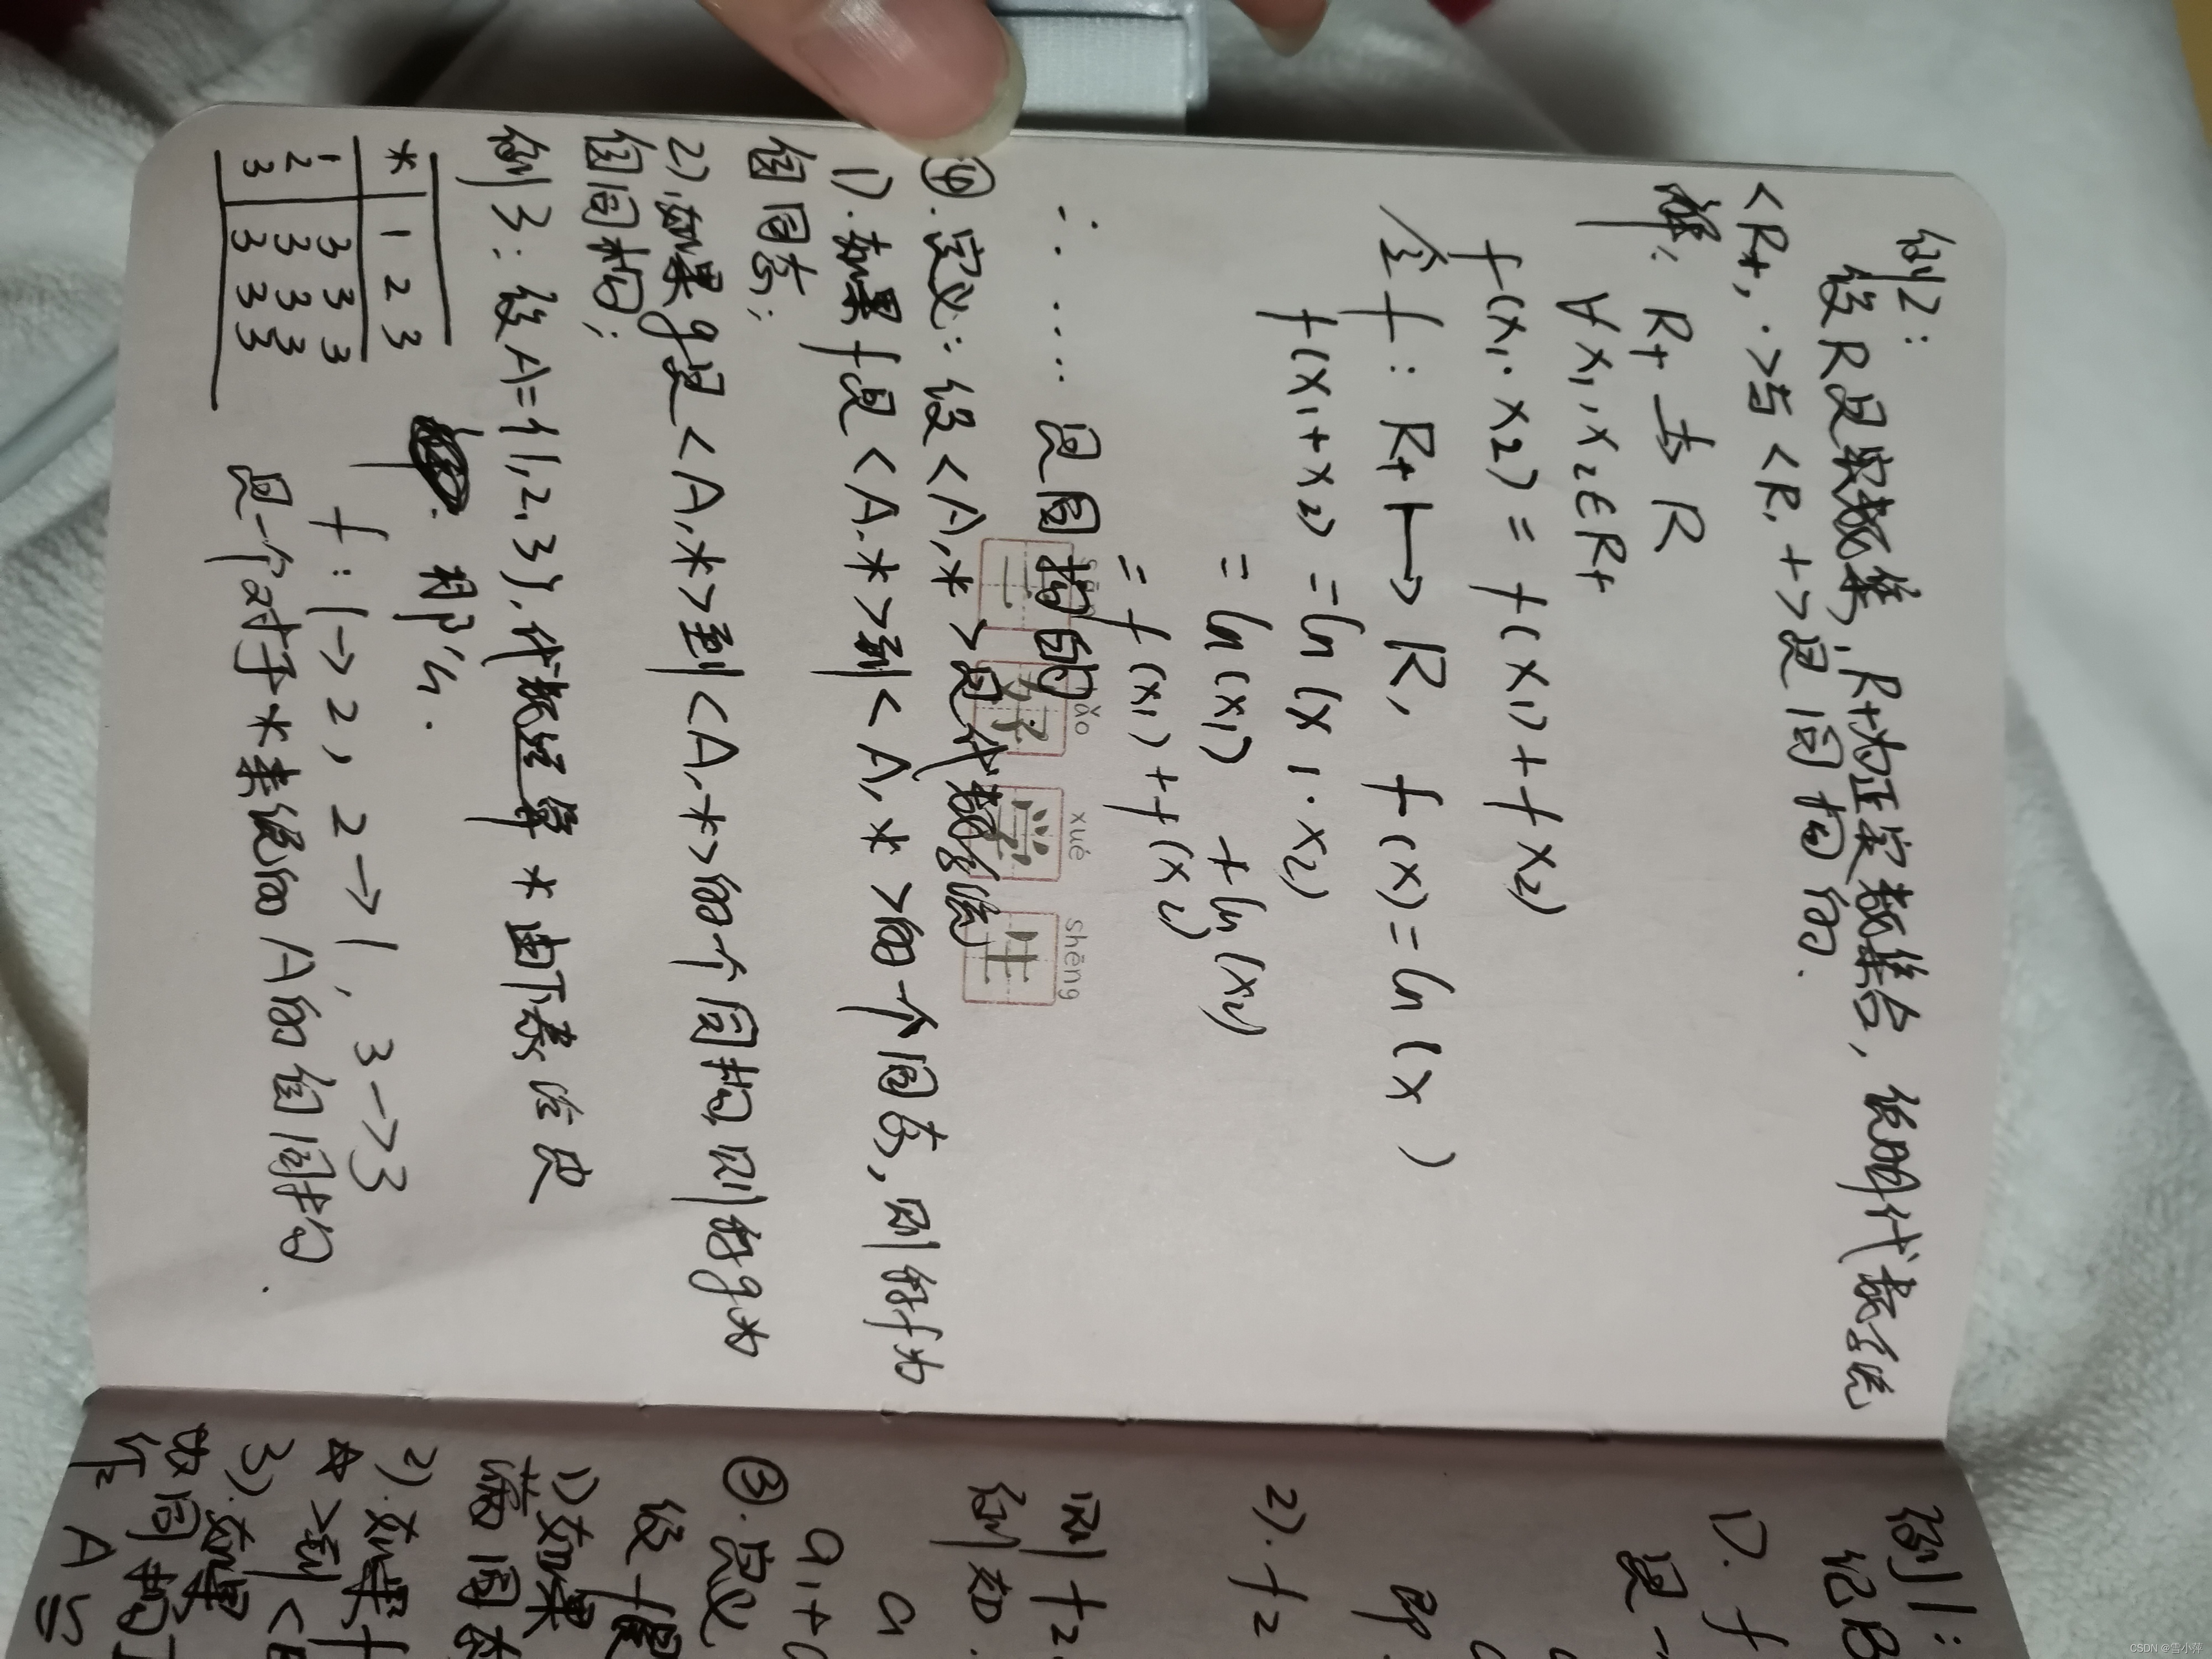 例2:
设R是实数集,R+为正实数集合,说明代数系统
<R+,·>与<R,+>是同构的.
解: R+ 去 R
∀x1,x2∈R+
f(x1·x2)=f(x1)+f x2)
令f:R+↦R, f(x)=ln(x)
f(x1+x2)=ln(x1·x2)
=ln(x1)+ln(x2)
=f(x1)+f(x2)
∴ …… 是同构的
三 好 学 生
hǎo xué shēng
④.定义:设<A,*>是代数系统
1).如果f是<A,*>到<A,*>的个同态,则称f为
自同态;
2).如果g是<A,*>到<A,*>的个同构,则称g为
自同构;
例3:设A={1,2,3},代数运算*由下表给定
* 1 2 3
1 3 3 3
2 3 3 3
3 3 3 3
那么.
f:1→2, 2→1, 3→3
是一个对于*来说的A的自同构.
例1:
记B
1).f
是一
即
2).f2
则f2
例如.
a
a1+
③.定义
设f
1)如果
满同态
2).如果f
☆>到<B
3).如果
为同构
作 A≌
CSDN @雪小萍